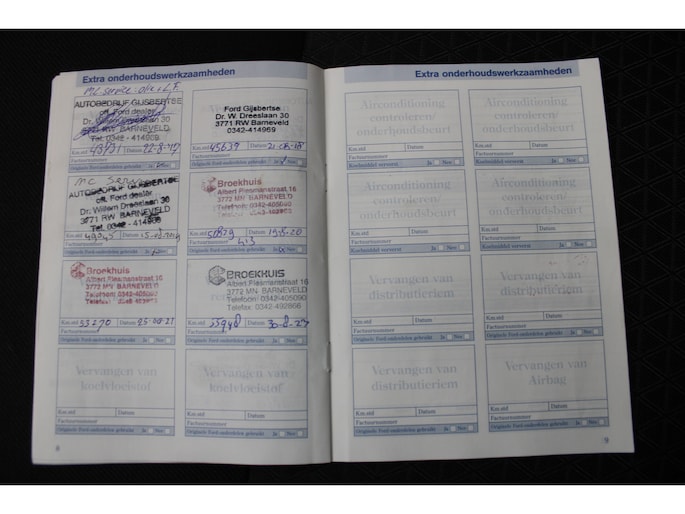 Extra onderhoudswerkzaamheden
AUTOBEDRIJF GIJSBERTSE
off. Ford dealer
Dr. Willem Dreeslaan 30
3771 RW BARNEVELD
Tel. 0342 - 414969
Km.std Datum 22-8-
Factuurnummer
Originele Ford-onderdelen gebruikt: Ja Nee
Ford Gijsbertse
Dr. W. Dreeslaan 30
3771 RW Barneveld
0342-414969
Km.std 45639 Datum
Factuurnummer
Originele Ford-onderdelen gebruikt: Ja Nee
AUTOBEDRIJF GIJSBERTSE
off. Ford dealer
Dr. Willem Dreeslaan 30
3771 RW BARNEVELD
Tel. 0342 - 414969
Km.std Datum
Factuurnummer
Originele Ford-onderdelen gebruikt: Ja Nee
Broekhuis
Albert Plesmanstraat 16
3772 MN BARNEVELD
Telefoon: 0342-405090
Km.std Datum
Factuurnummer
Originele Ford-onderdelen gebruikt: Ja Nee
Broekhuis
Albert Plesmanstraat 16
3772 MN BARNEVELD
Telefoon: 0342-405090
Km.std 53270 Datum
Factuurnummer
Originele Ford-onderdelen gebruikt: Ja Nee
BROEKHUIS
Albert Plesmanstraat 16
3772 MN BARNEVELD
Telefoon: 0342-405090
Telefax: 0342-492866
Km.std Datum
Factuurnummer
Originele Ford-onderdelen gebruikt: Ja Nee
Vervangen van
koelvloeistof
Km.std Datum
Factuurnummer
Originele Ford-onderdelen gebruikt: Ja Nee
Vervangen van
koelvloeistof
Km.std Datum
Factuurnummer
Originele Ford-onderdelen gebruikt: Ja Nee
8
Extra onderhoudswerkzaamheden
Airconditioning
controleren/
onderhoudsbeurt
Km.std Datum
Factuurnummer
Koelmiddel ververst Ja Nee
Airconditioning
controleren/
onderhoudsbeurt
Km.std Datum
Factuurnummer
Koelmiddel ververst Ja Nee
Airconditioning
controleren/
onderhoudsbeurt
Km.std Datum
Factuurnummer
Koelmiddel ververst Ja Nee
Airconditioning
controleren/
onderhoudsbeurt
Km.std Datum
Factuurnummer
Koelmiddel ververst Ja Nee
Vervangen van
distributieriem
Km.std Datum
Factuurnummer
Originele Ford-onderdelen gebruikt: Ja Nee
Vervangen van
distributieriem
Km.std Datum
Factuurnummer
Originele Ford-onderdelen gebruikt: Ja Nee
Vervangen van
distributieriem
Km.std Datum
Factuurnummer
Originele Ford-onderdelen gebruikt: Ja Nee
Vervangen van
Airbag
Km.std Datum
Factuurnummer
Originele Ford-onderdelen gebruikt: Ja Nee
9